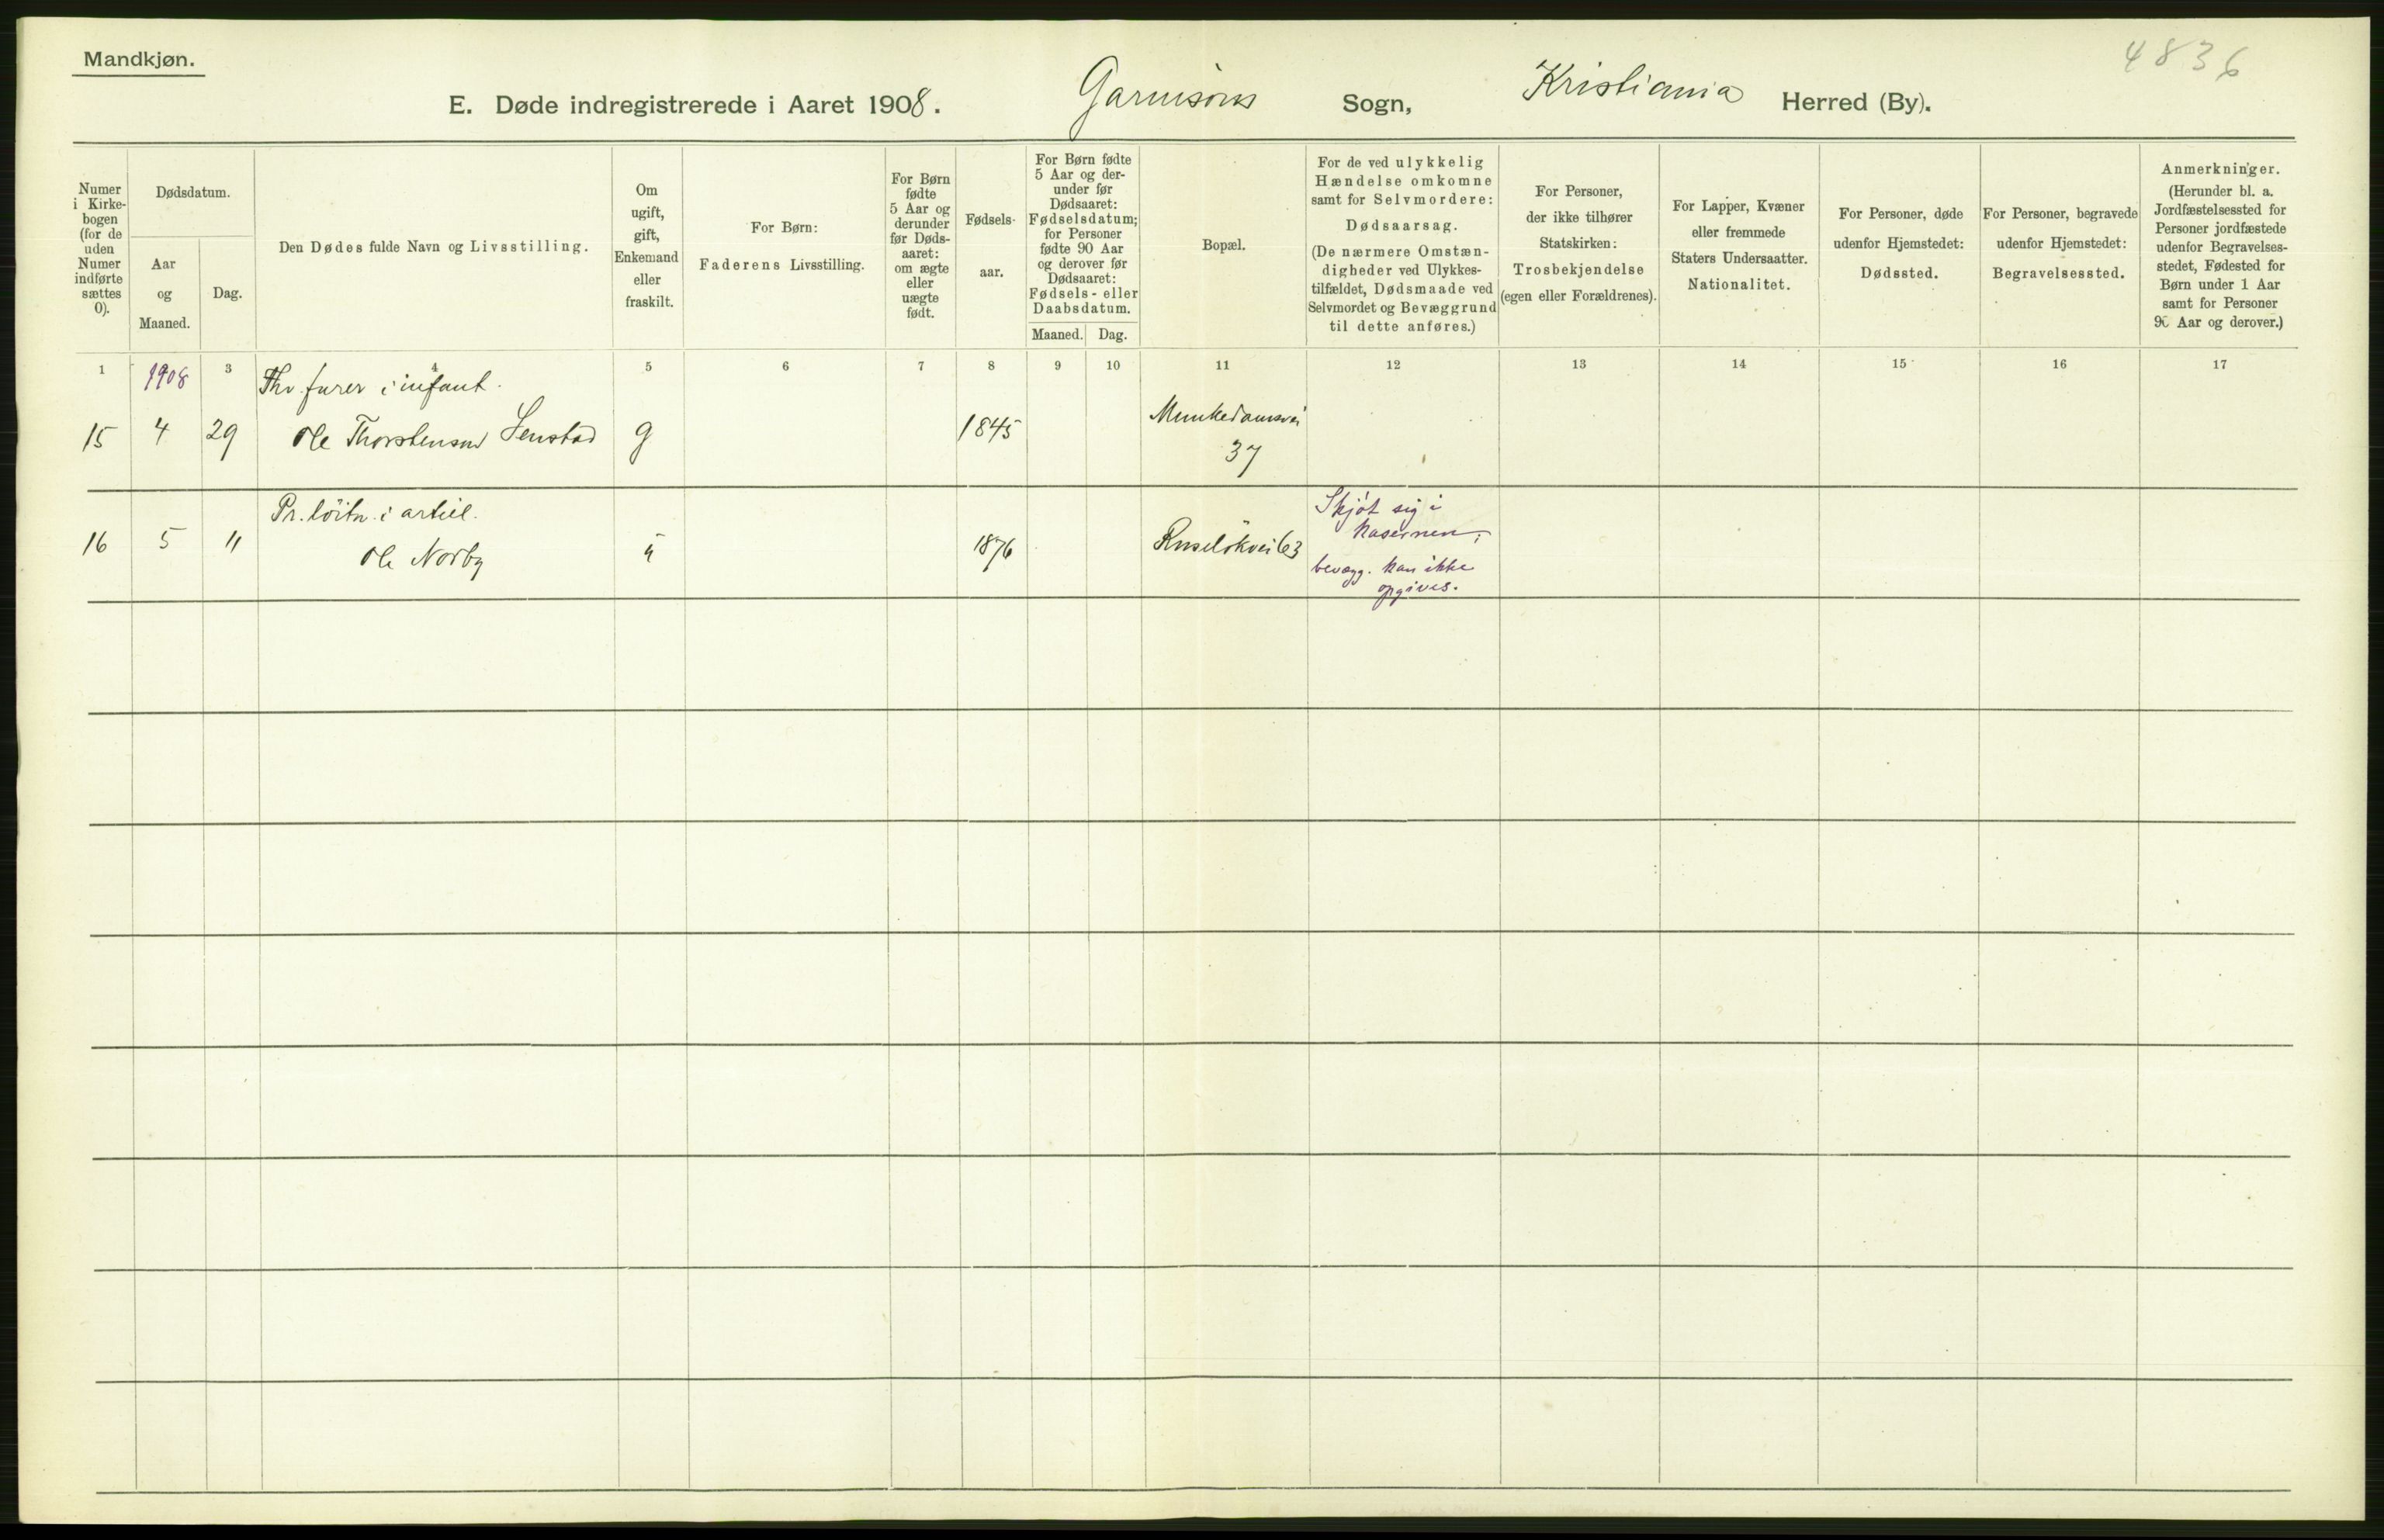 Mandkjøn.
4836
E. Døde indregistrerede i Aaret 1908. Garnisons Sogn, Kristiania Herred (By).
Numer
i Kirke-
bogen
(for de
uden
Numer
indførte
sættes
0).
Dødsdatum.
Aar
og
Maaned.
Dag.
Den Dødes fulde Navn og Livsstilling.
Om
ugift,
gift,
Enkemand
eller
fraskilt.
For Børn:
Faderens Livsstilling.
For Børn
fødte
5 Aar og
derunder
før Døds-
aaret:
om ægte
eller
uægte
født.
Fødsels-
aar.
For Børn fødte
5 Aar og der-
under før
Dødsaaret:
Fødselsdatum;
for Personer
fødte 90 Aar
og derover før
Dødsaaret:
Fødsels- eller
Daabsdatum.
Maaned. Dag.
Bopæl.
For de ved ulykkelig
Hændelse omkomne
samt for Selvmordere:
Dødsaarsag.
(De nærmere Omstæn-
digheder ved Ulykkes-
tilfældet, Dødsmaade ved
Selvmordet og Bevæggrund
til dette anføres.)
For Personer,
der ikke tilhører
Statskirken:
Trosbekjendelse
(egen eller Forældrenes).
For Lapper, Kvæner
eller fremmede
Staters Undersaatter.
Nationalitet.
For Personer, døde
udenfor Hjemstedet:
Dødssted.
For Personer, begravede
udenfor Hjemstedet:
Begravelsessted.
Anmerkninger.
(Herunder bl. a.
Jordfæstelsessted for
Personer jordfæstede
udenfor Begravelses-
stedet, Fødested for
Børn under 1 Aar
samt for Personer
90 Aar og derover.)
1 3 4 5 6 7 8 9 10 11 12 13 14 15 16 17
1908
furer i infant.
15 4 29 Ole Thorstensen Senstad g 1845 Munkedamsvei
37
Pr. löitn. i artill.
16 5 11 Ole Norby u 1876 Ruselökvei 63
Skjöt sig i
kasernen;
bevægg. kan ikke
opgives.